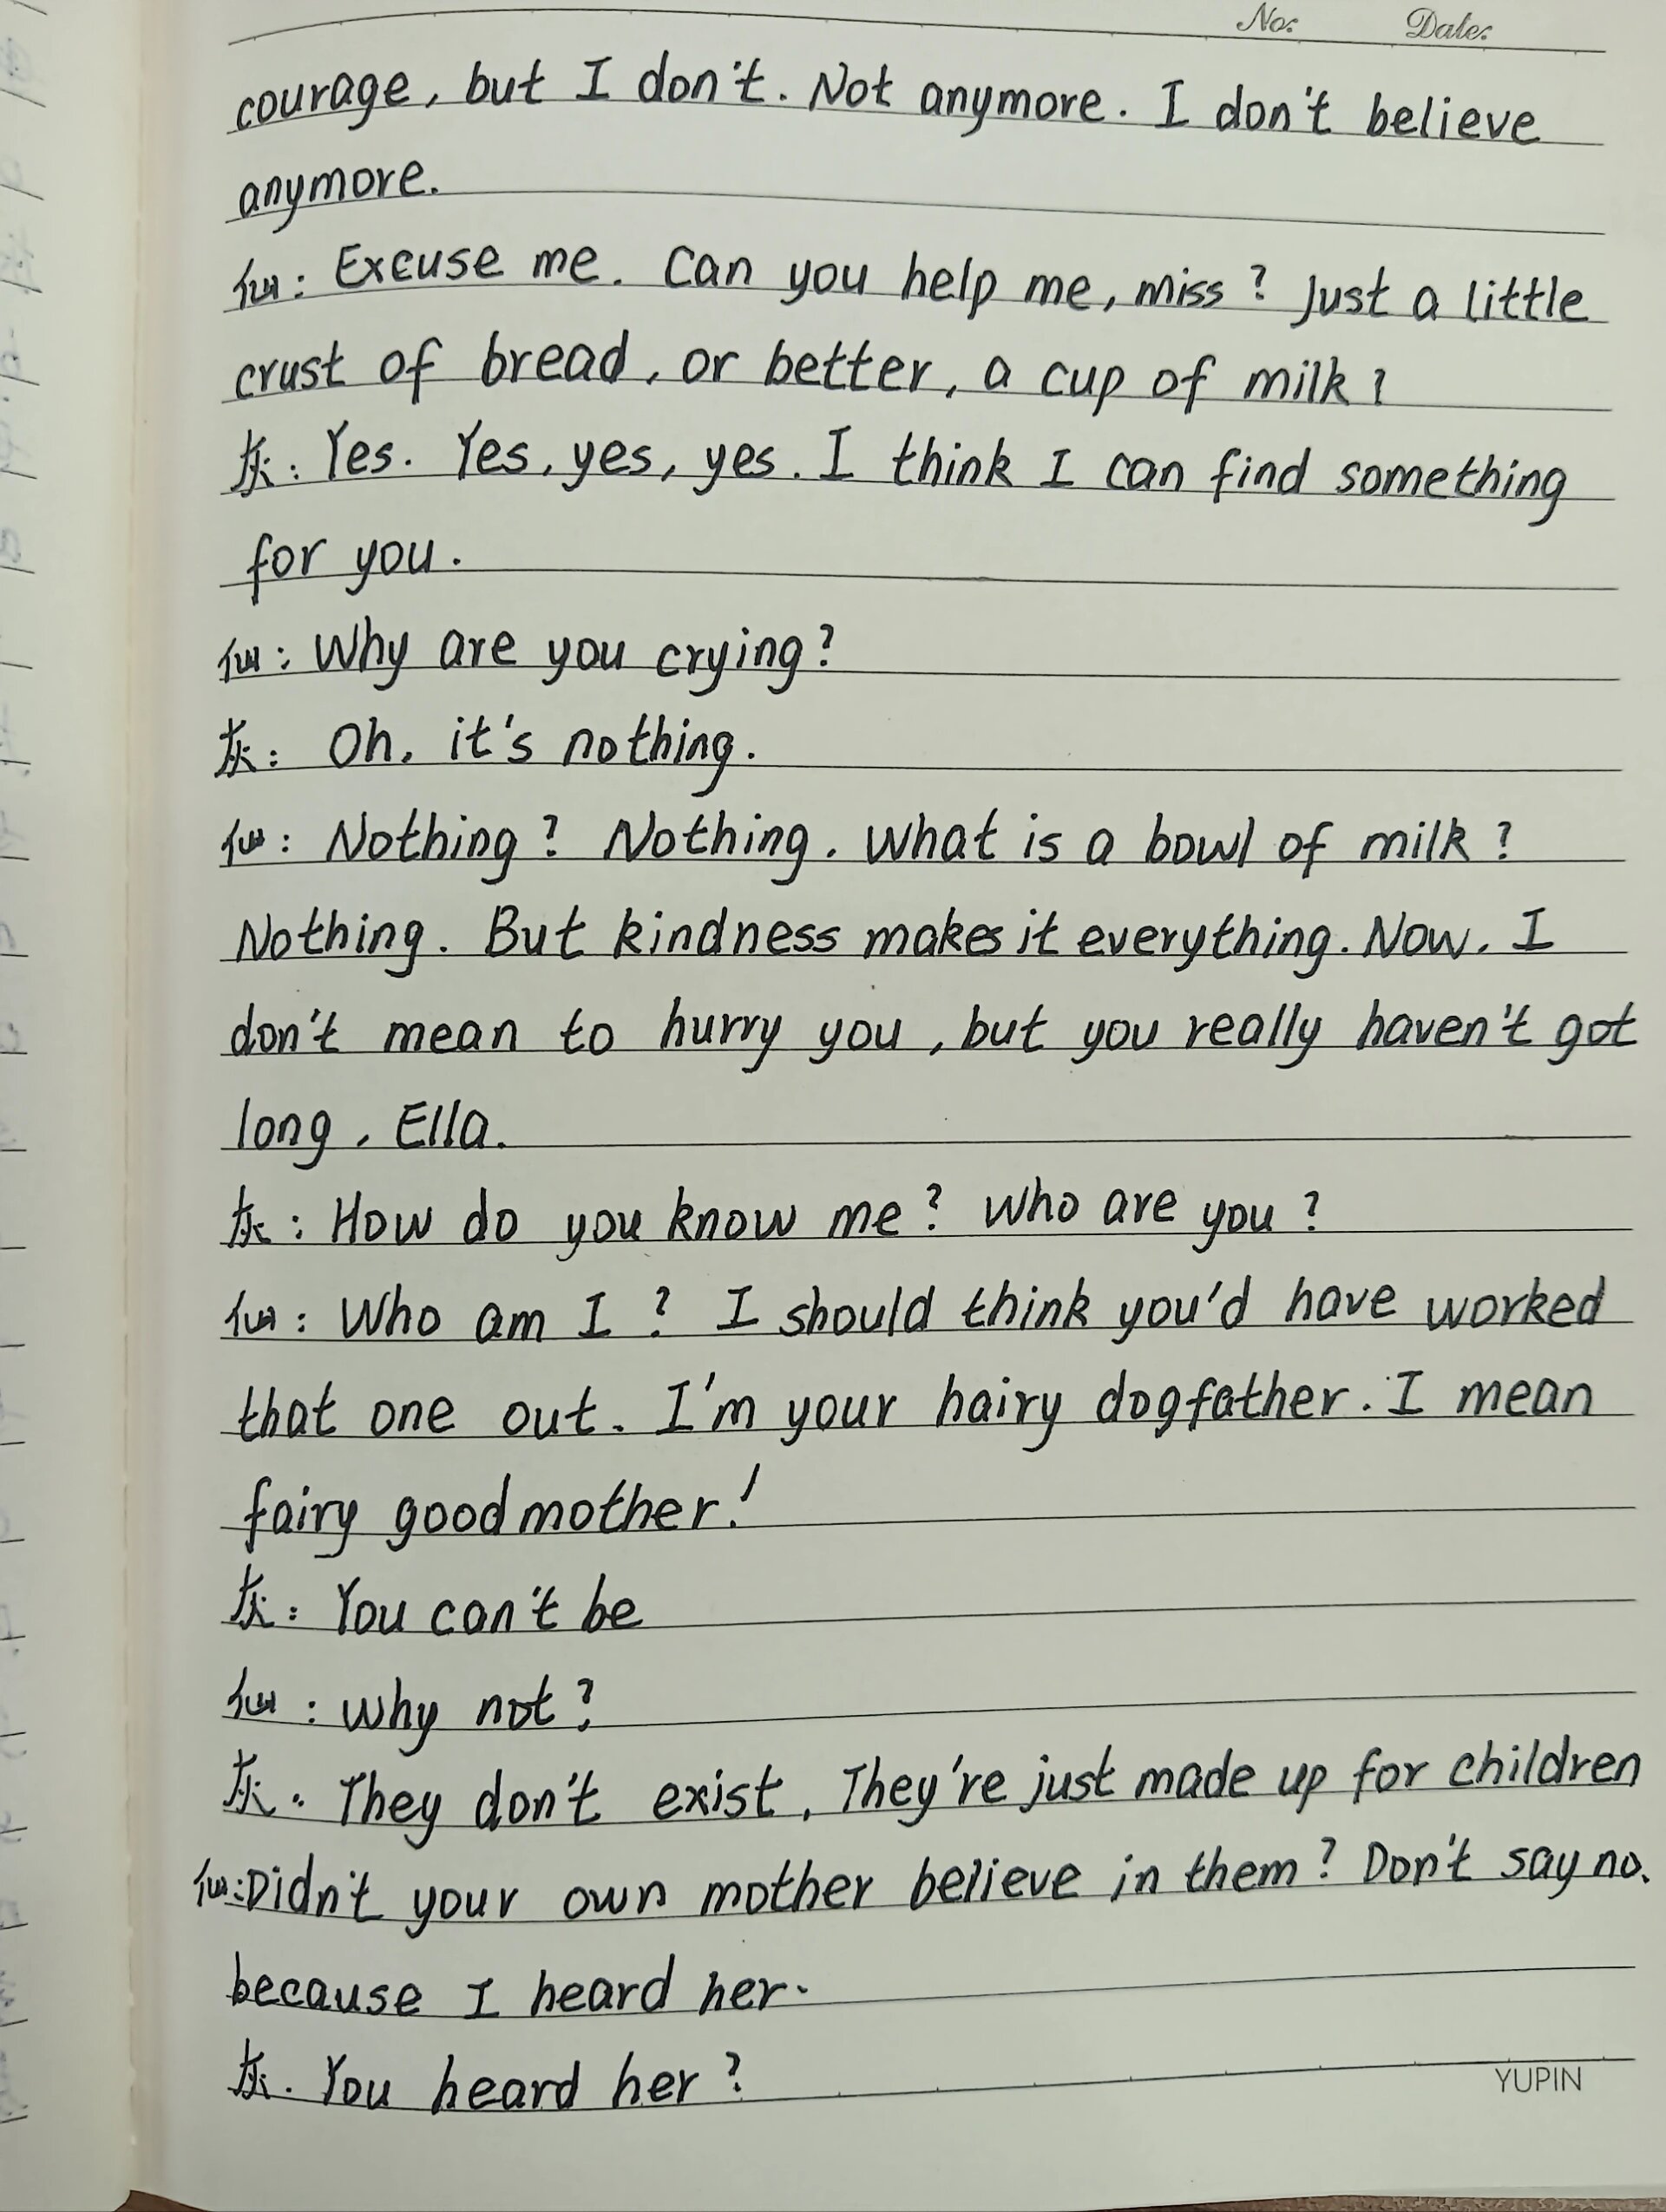 No: Date:
courage, but I don't. Not anymore. I don't believe
anymore.
仙: Excuse me. Can you help me, miss? Just a little
crust of bread, or better, a cup of milk?
灰: Yes. Yes, yes, yes. I think I can find something
for you.
仙: Why are you crying?
灰: Oh, it's nothing.
仙: Nothing? Nothing. What is a bowl of milk?
Nothing. But kindness makes it everything. Now, I
don't mean to hurry you, but you really haven't got
long, Ella.
灰: How do you know me? Who are you?
仙: Who am I? I should think you'd have worked
that one out. I'm your hairy dogfather. I mean
fairy goodmother!
灰: You can't be
仙: Why not?
灰. They don't exist, They're just made up for children
仙:Didn't your own mother believe in them? Don't say no.
because I heard her.
灰. You heard her?
YUPIN